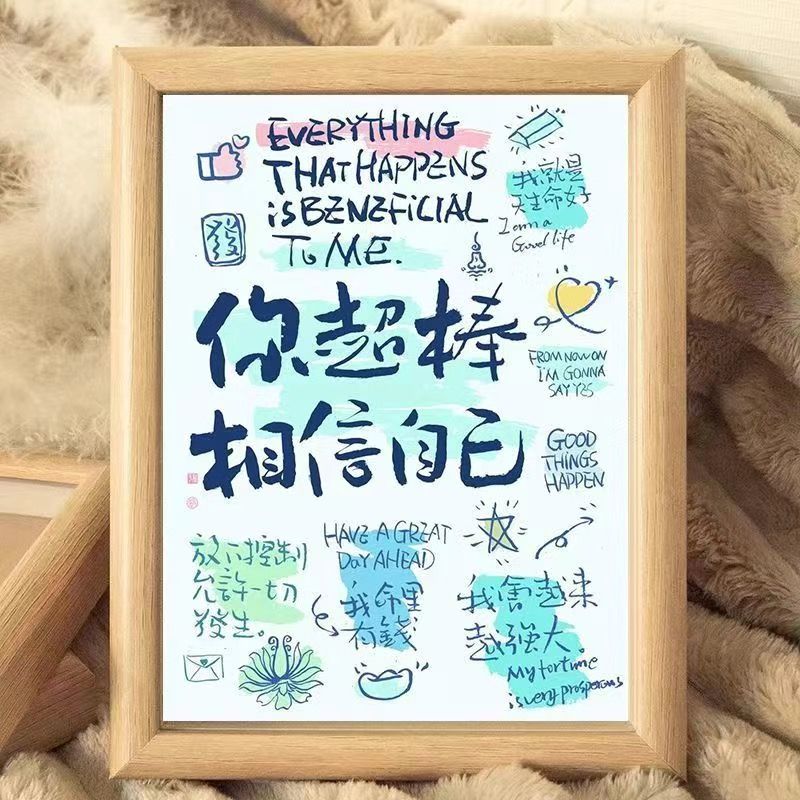 EVERYTHING
THAT HAPPENS
iS BENEFiCIAL
To ME.
發
我就是
天生命好
I am a
Good life
你超棒
相信自己
FROM NOW ON
i'M GONNA
SAY YES
GOOD
THINGS
HAPPEN
放下控制
允許一切
發生。
HAVE A GREAT
DAY AHEAD
我命里
有錢
我會越来
越强大。
My fortune
is very prosperous